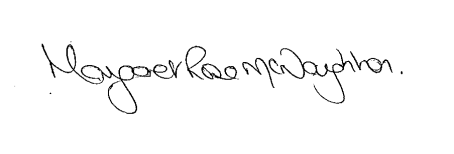 Margaret Rose McNaughton.